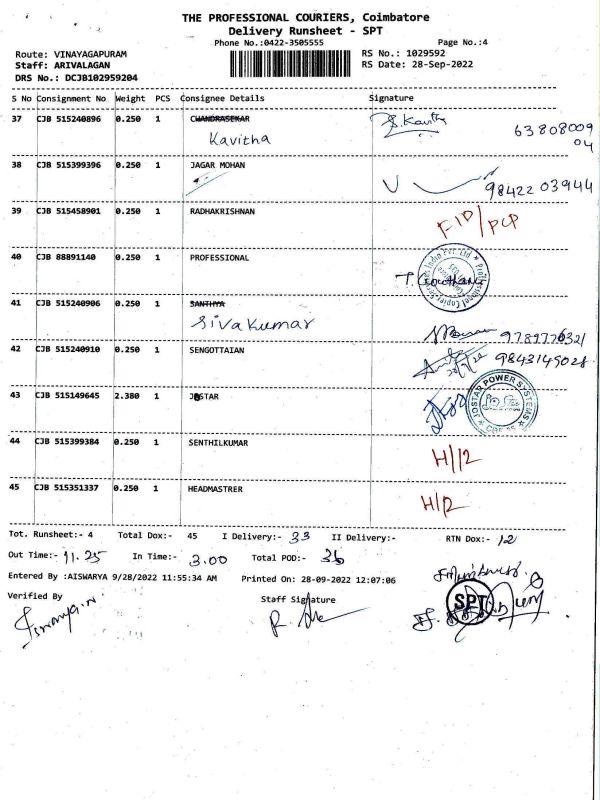 THE PROFESSIONAL COURIERS, Coimbatore
Delivery Runsheet - SPT
Phone No.:0422-3505555 Page No.:4
Route: VINAYAGAPURAM RS No.: 1029592
Staff: ARIVALAGAN RS Date: 28-Sep-2022
DRS No.: DCJB1029S9204
S No Consignment No Weight PCS Consignee Details Signature
37 CJB 515240896 0.250 1 CHANDRASEKAR
Kavitha 63808009
04
38 CJB 515399396 0.250 1 JAGAR MOHAN
98422 03944
39 CJB 515458901 0.250 1 RADHAKRISHNAN
40 CJB 88891140 0.250 1 PROFESSIONAL
41 CJB 515240906 0.250 1 SANTHYA
Siva kumar
9789776321
42 CJB 515240910 0.250 1 SENGOTTAIAN
9843149028
43 CJB 515149645 2.380 1 JOSTAR
JOSTAR POWER SYSTEMS
44 CJB 515399384 0.250 1 SENTHILKUMAR
H/12
45 CJB 515351337 0.250 1 HEADMASTRER
H/12
Tot. Runsheet:- 4 Total Dox:- 45 I Delivery:- 33 II Delivery:- RTN Dox:- 12
Out Time:- 11.25 In Time:- 3.00 Total POD:- 36
Entered By :AISWARYA 9/28/2022 11:55:34 AM Printed On: 28-09-2022 12:07:06
Verified By Staff Signature
SPT